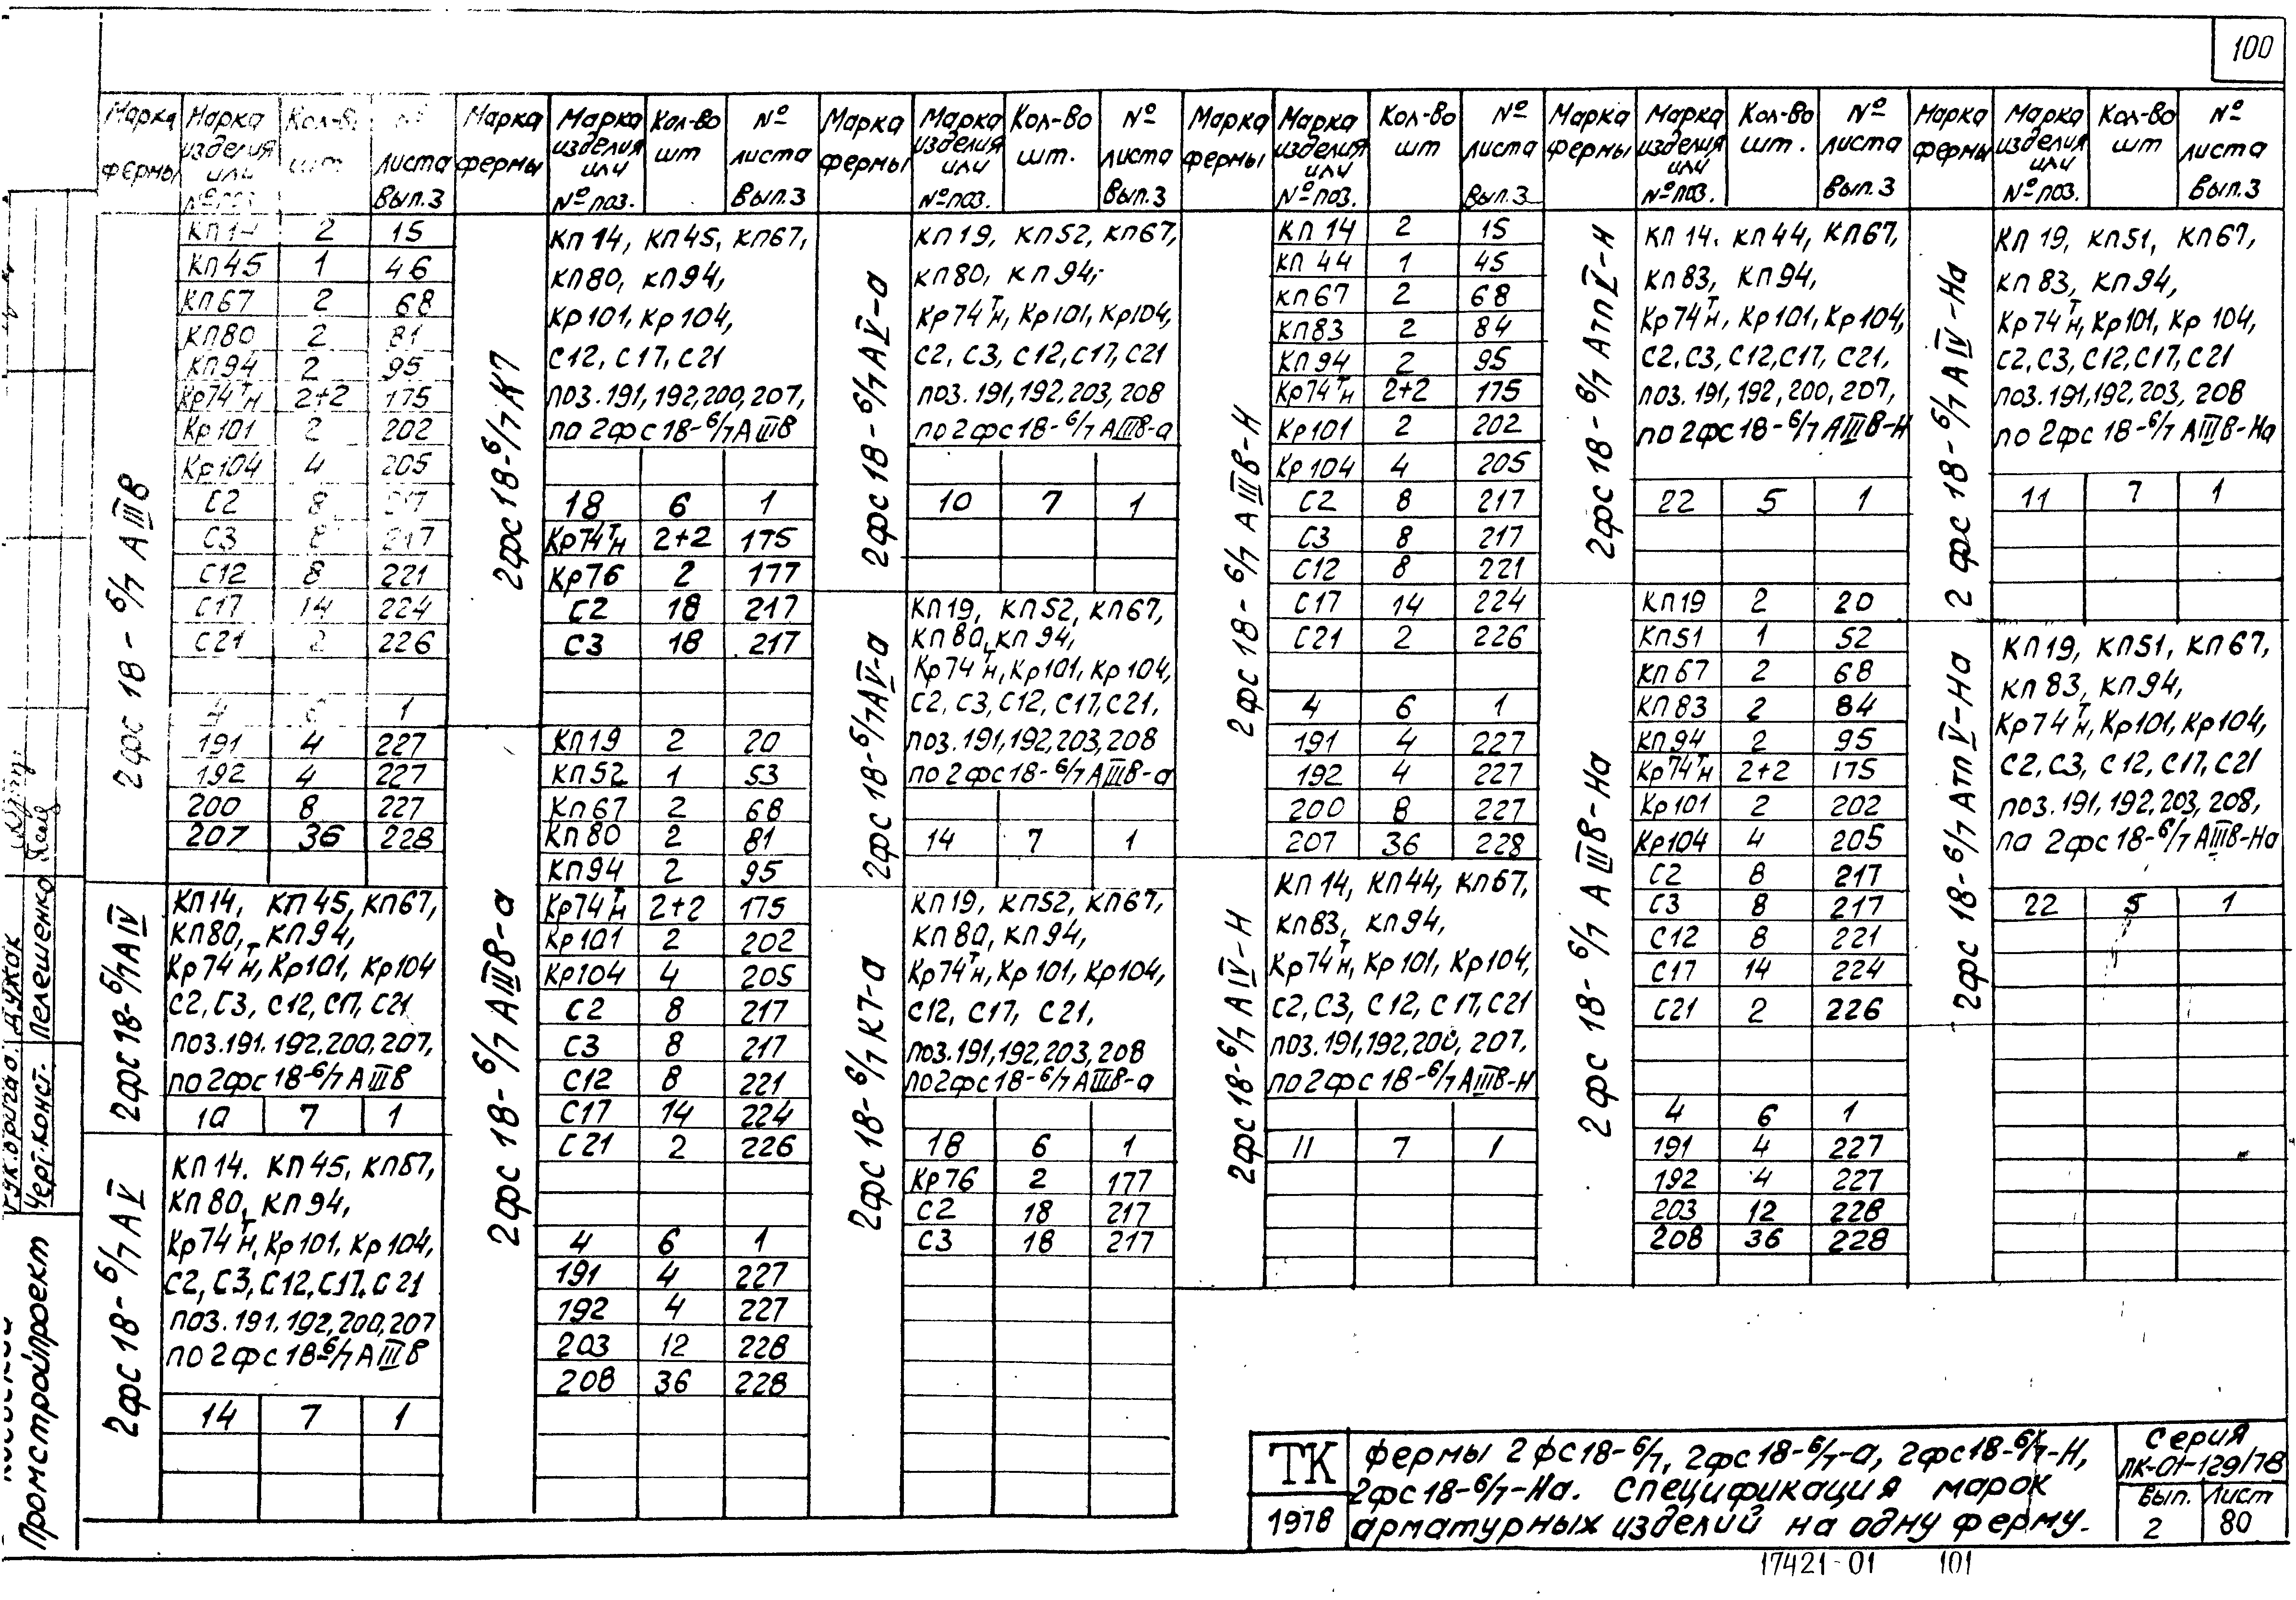 100
Марка фермы
Марка изделия или № поз.
Кол-во шт.
№ листа Вып.3
2фс 18-6/7 АIIIв
КП14 2 15
КП45 1 46
КП67 2 68
КП80 2 81
КП94 2 95
Кр74тн 2+2 175
Кр101 2 202
Кр104 4 205
С2 8 217
С3 8 217
С12 8 221
С17 14 224
С21 2 226
4 6 1
191 4 227
192 4 227
200 8 227
207 36 228
2фс18-6/7АIV
КП14, КП45, КП67,
КП80, КП94,
Кр74тн, Кр101, Кр104
С2, С3, С12, С17, С21
поз.191. 192.200,207,
по 2фс18-6/7АIIIв
10 7 1
2фс 18-6/7АV
КП14. КП45, КП67,
КП80, КП94,
Кр74тн, Кр101, Кр104,
С2, С3, С12, С17, С21
поз.191, 192, 200, 207
по 2фс18-6/7АIIIв
14 7 1
Марка фермы
Марка изделия или № поз.
Кол-во шт
№ листа Вып.3
2фс18-6/7К7
КП14, КП45, КП67,
КП80, КП94,
Кр101, Кр104,
С12, С17, С21
поз.191, 192,200,207,
по 2фс18-6/7АIIIв
18 6 1
Кр74тн 2+2 175
Кр76 2 177
С2 18 217
С3 18 217
2фс 18-6/7 АIIIв-а
КП19 2 20
КП52 1 53
КП67 2 68
КП80 2 81
КП94 2 95
Кр74тн 2+2 175
Кр101 2 202
Кр104 4 205
С2 8 217
С3 8 217
С12 8 221
С17 14 224
С21 2 226
4 6 1
191 4 227
192 4 227
203 12 228
208 36 228
Марка фермы
Марка изделия или № поз.
Кол-во шт.
№ листа Вып.3
2фс 18-6/7АV-а
КП19, КП52, КП67,
КП80, КП94,
Кр74тн, Кр101, Кр104,
С2, С3, С12, С17, С21
поз.191, 192, 203, 208
по 2фс18-6/7 АIIIв-а
10 7 1
2фс 18-6/7АV-а
КП19, КП52, КП67,
КП80, КП94,
Кр74тн, Кр101, Кр104,
С2, С3, С12, С17, С21,
поз.191,192,203,208
по 2фс18-6/7АIIIв-а
14 7 1
2фс 18-6/7 К7-а
КП19, КП52, КП67,
КП80, КП94,
Кр74тн, Кр101, Кр104,
С12, С17, С21,
поз.191,192,203,208
по2фс18-6/7АIIIв-а
18 6 1
Кр76 2 177
С2 18 217
С3 18 217
Марка фермы
Марка изделия или № поз.
Кол-во шт
№ листа Вып.3
2фс 18-6/7 АIIIв-Н
КП14 2 15
КП44 1 45
КП67 2 68
КП83 2 84
КП94 2 95
Кр74тн 2+2 175
Кр101 2 202
Кр104 4 205
С2 8 217
С3 8 217
С12 8 221
С17 14 224
С21 2 226
4 6 1
191 4 227
192 4 227
200 8 227
207 36 228
2фс18-6/7 АIV-Н
КП14, КП44, КП67,
КП83, КП94,
Кр74тн, Кр101, Кр104,
С2, С3, С12, С17, С21
поз.191,192,200, 207,
по 2фс18-6/7АIIIв-Н
11 7 1
Марка фермы
Марка изделия или № поз.
Кол-во шт.
№ листа Вып.3
2фс 18-6/7 АтпV-Н
КП14. КП44, КП67,
КП83, КП94,
Кр74тн, Кр101, Кр104,
С2, С3, С12, С17, С21,
поз. 191, 192, 200, 207,
по 2фс18-6/7 АIIIв-Н
22 5 1
2фс 18-6/7 АIIIв-На
КП19 2 20
КП51 1 52
КП67 2 68
КП83 2 84
КП94 2 95
Кр74тн 2+2 175
Кр101 2 202
Кр104 4 205
С2 8 217
С3 8 217
С12 8 221
С17 14 224
С21 2 226
4 6 1
191 4 227
192 4 227
203 12 228
208 36 228
Марка фермы
Марка изделия или № поз.
Кол-во шт
№ листа Вып.3
2фс 18-6/7 АIV-На
КП19, КП51, КП67,
КП83, КП94,
Кр74тн, Кр101, Кр104,
С2, С3, С12, С17, С21
поз.191,192,203, 208
по 2фс18-6/7 АIIIв-На
11 7 1
2фс 18-6/7АтпV-На
КП19, КП51, КП67,
КП83, КП94,
Кр74тн, Кр101, Кр104,
С2, С3, С12, С17, С21
поз.191, 192, 203, 208,
по 2фс18-6/7АIIIв-На
22 5 1
Дужак
Черт.-конст. Пелешенко
Промстройпроект
ТК
1978
фермы 2фс18-6/7, 2фс18-6/7-а, 2фс18-6/7-Н,
2фс18-6/7-На. Спецификация марок
арматурных изделий на одну ферму.
Серия
ПК-01-129/78
Вып. Лист
2 80
17421-01 101